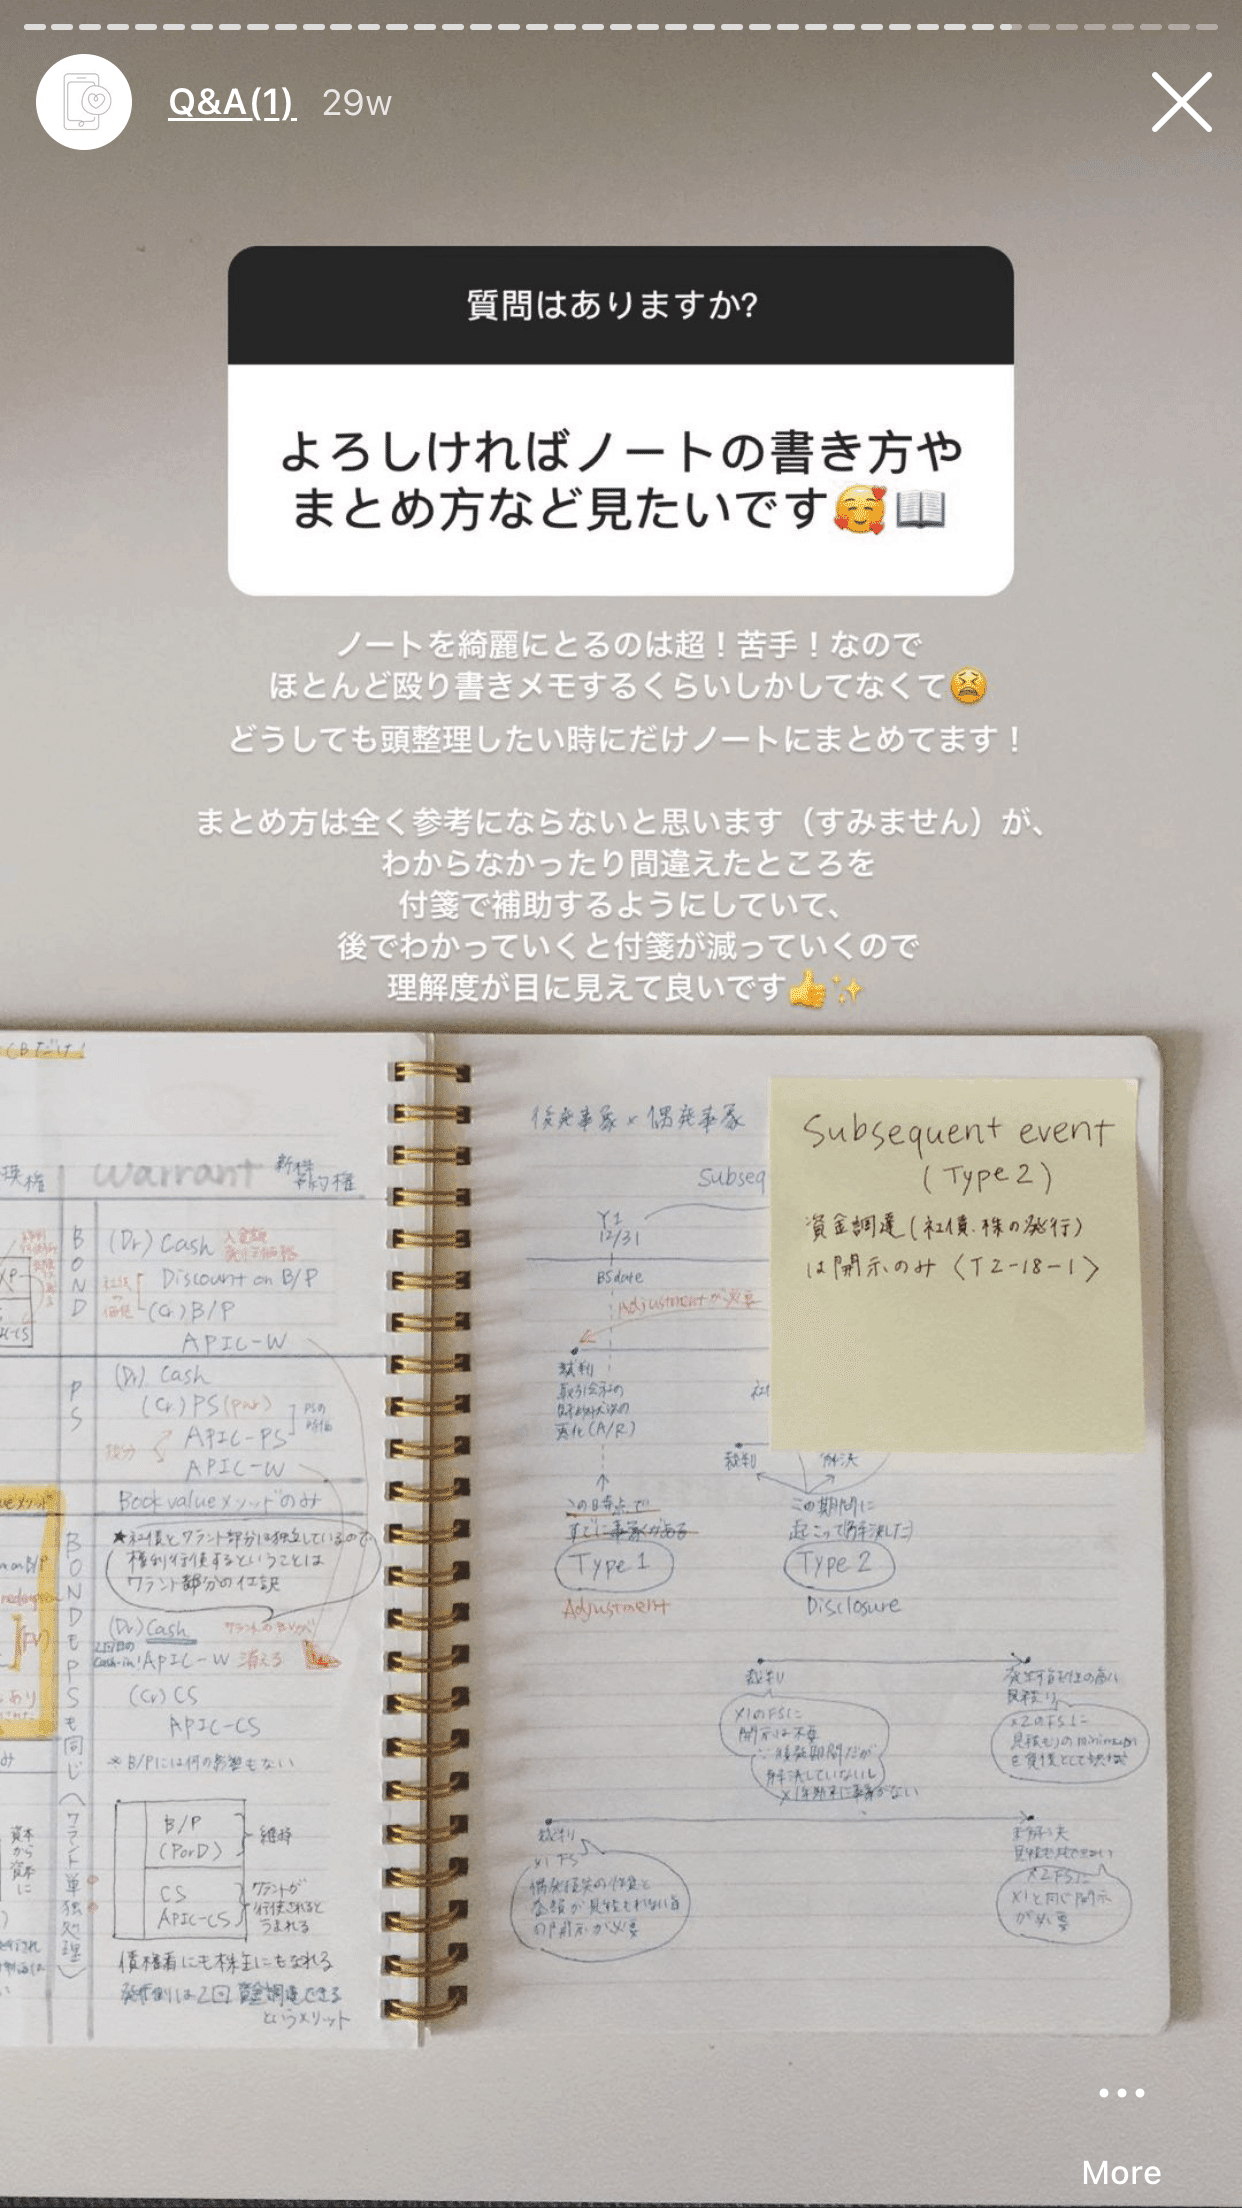 Q&A(1) 29w
質問はありますか?
よろしければノートの書き方や
まとめ方など見たいです🥰📖
ノートを綺麗にとるのは超！苦手！なので
ほとんど殴り書きメモするくらいしかしてなくて😫
どうしても頭整理したい時にだけノートにまとめてます！
まとめ方は全く参考にならないと思います（すみません）が、
わからなかったり間違えたところを
付箋で補助するようにしていて、
後でわかっていくと付箋が減っていくので
理解度が目に見えて良いです👍✨
CBだけ！
換権
warrant 新株予約権
BOND
(Dr) Cash
Discount on B/P
(Cr) B/P
APIC-W
PS
(Dr) Cash
(Cr) PS (par)
APIC-PS
APIC-W
Book valueメソッドのみ
BONDもPSも同じ（ワラント単独処理）
★社債とワラント部分は独立しているので
権利行使するということは
ワラント部分の仕訳
(Dr) Cash
APIC-W 消える
(Cr) CS
APIC-CS
※B/Pには何の影響もない
B/P
(PorD)
維持
CS
APIC-CS
ワラントが
行使されると
うまれる
資本
から
資本
に
債権者にも株主にもなれる
発行側は2回資金調達できる
というメリット
後発事象×偶発事象
Subseq
Y1
12/31
BSdate
Adjustmentが必要
裁判
取引会社の
財政状況の
悪化(A/R)
裁判
解決
この時点で
すでに事象がある
Type 1
Adjustment
この期間に
起こって(解決した)
Type 2
Disclosure
Subsequent event
(Type 2)
資金調達(社債.株の発行)
は開示のみ〈T2-18-1〉
裁判
X1のFSに
開示は不要
∵後発期間だが
解決していないし
X1年期末に事象がない
X2のFSに
見積もりのminimum
を負債として計上
裁判
X1 FS
未解決
X2FSに
X1と同じ開示
が必要
More